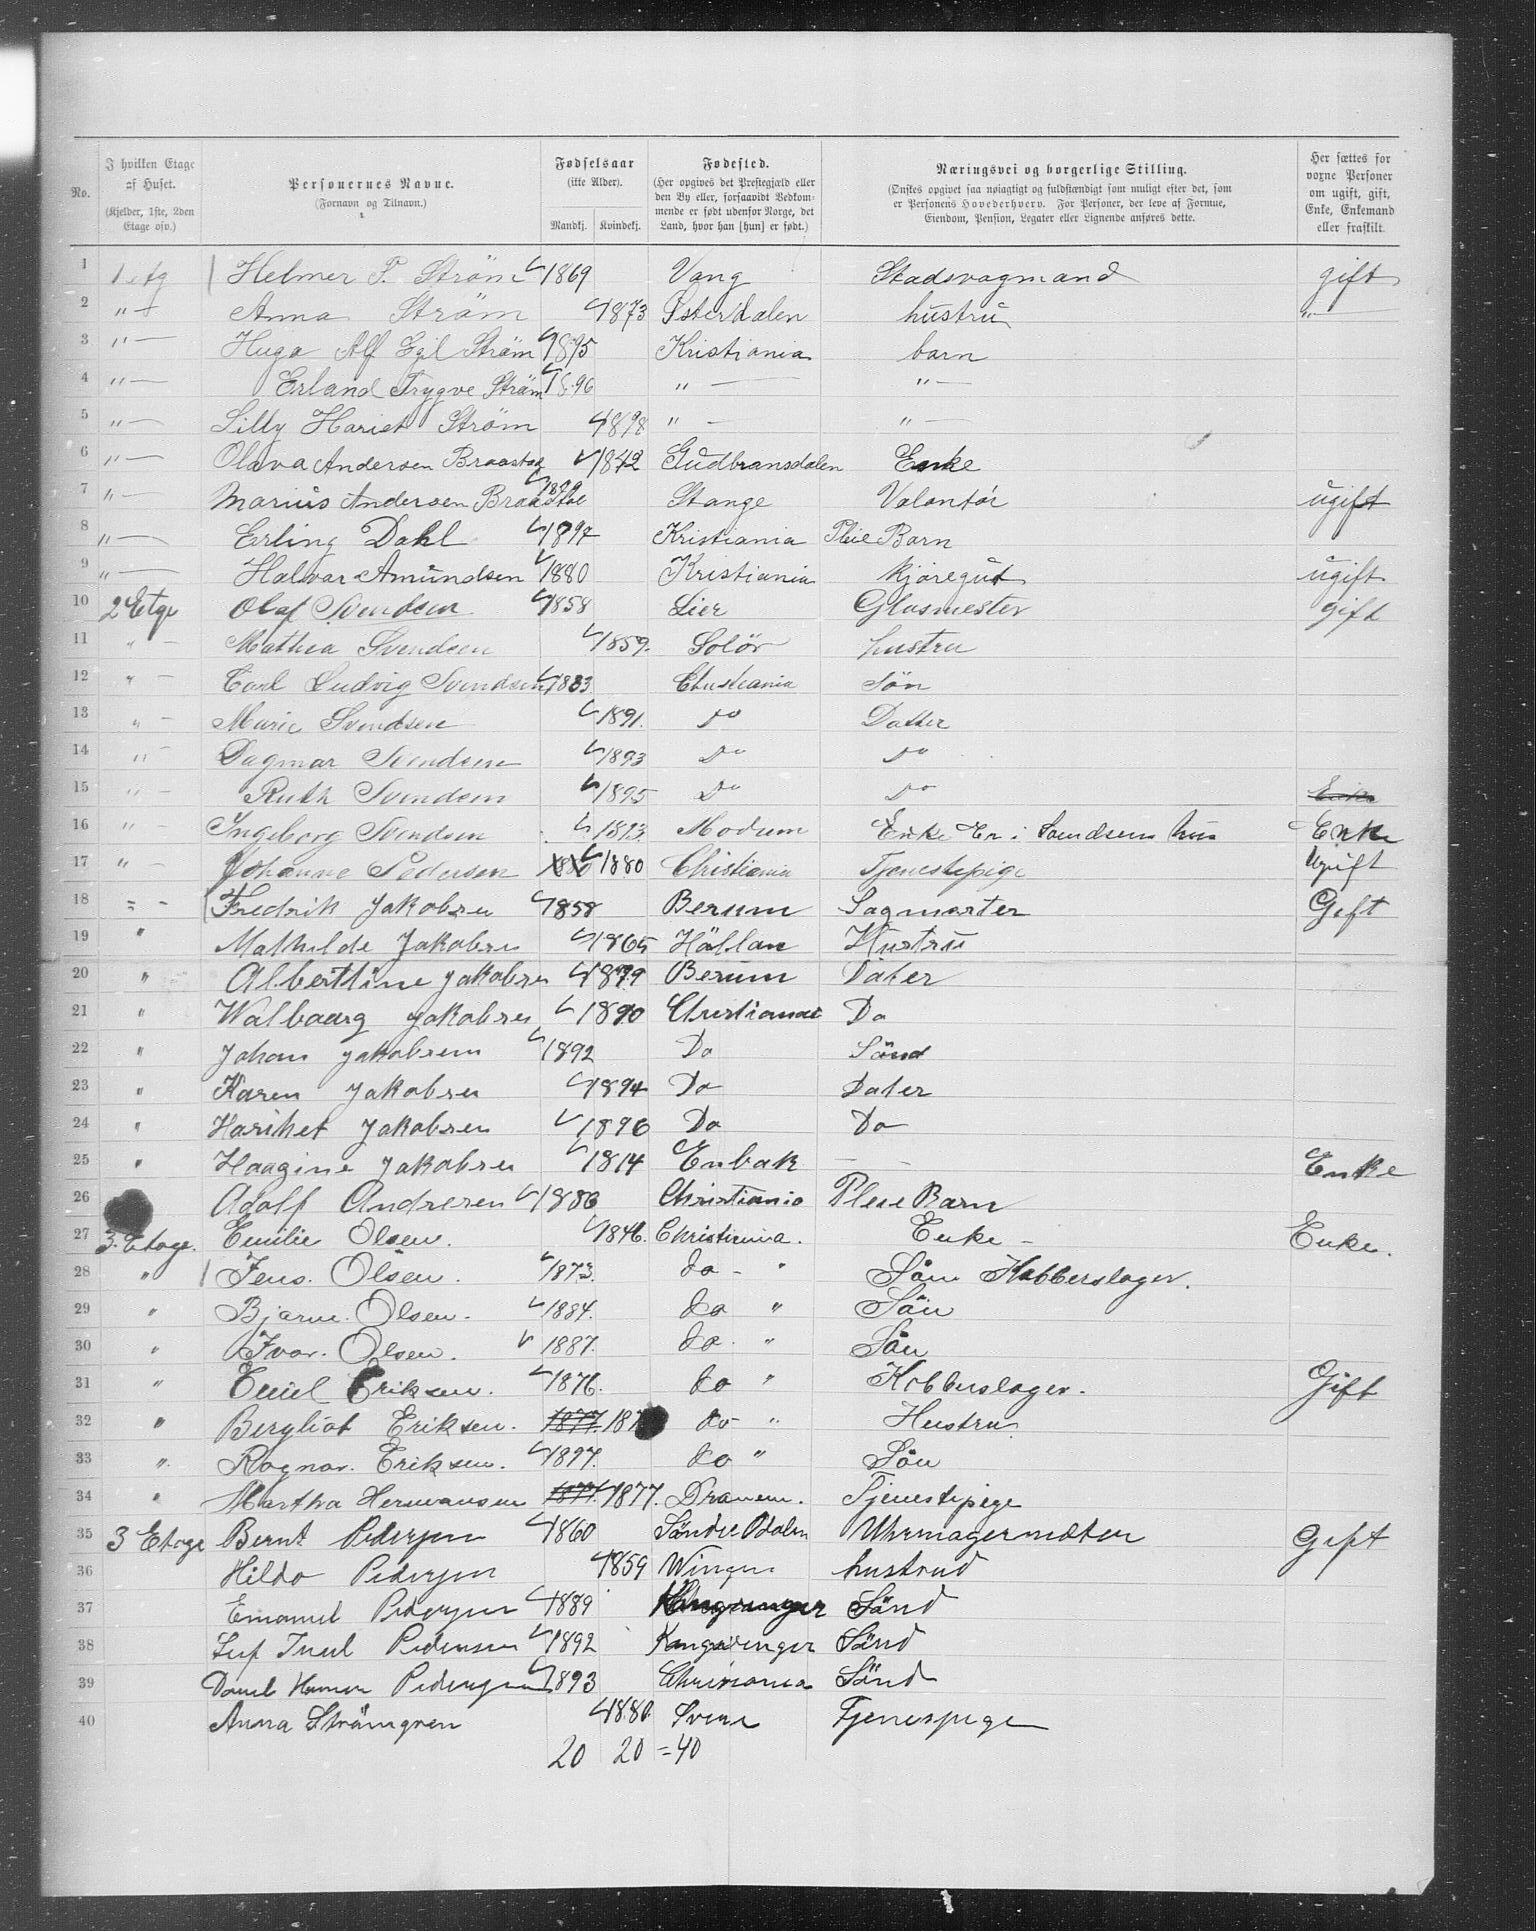 No. I hvilken Etage af Huset. (Kjelder, 1ste, 2den Etage osv.) Personernes Navne. (Fornavn og Tilnavn.) Fødselsaar (ikke Alder). Mandkj. Kvindekj. Fødested. (Her opgives det Prestegjæld eller den By eller, forsaavidt Vedkommende er født udenfor Norge, det Land, hvor han [hun] er født.) Næringsvei og borgerlige Stilling. (Ønskes opgivet saa nøiagtigt og fuldstændigt som muligt efter det, som er Personens Hovederhverv. For Personer, der leve af Formue, Eiendom, Pension, Legater eller Lignende anføres dette. Her sættes for voxne Personer om ugift, gift, Enke, Enkemand eller fraskilt.
1 1 etg Helmer P. Ström 1869 Vang Stadsvognmand gift
2 " Anna Ström 1873 Österdalen hustru "
3 " Hugo Alf Egil Ström 1895 Kristiania barn
4 " Erland Trygve Ström 1896 " "
5 " Lilly Hariet Ström 1898 " "
6 " Olava Andersen Braastad 1842 Gudbransdalen Enke
7 " Marius Andersen Braastad 1879 Stange Volontör ugift
8 " Erling Dahl 1897 Kristiania Pleie Barn
9 " Halvar Amundsen 1880 Kristiania kjöregut ugift
10 2 Etge Olaf Svendsen 1858 Lier Glasmester gift
11 " Mathea Svendsen 1859. Solör hustru
12 " Carl Ludvig Svendsen 1883 Christiania Sön
13 " Marie Svendsen 1891. Do Datter
14 " Dagmar Svendsen 1893 Do Do
15 " Ruth Svendsen 1895 Do Do Enke
16 " Ingeborg Svendsen Modum Enke Er i Svendsens hus Enke
17 " Johanne Pedersen 1880 1880 Christiania Tjenestepige Ugift
18 " Fredrik Jakobsen 1858 Berum Sagmester Gift
19 " Mathilde Jakobsen 1865 Hållan Hustru
20 " Alberttine Jakobsen 1879 Berum Dater
21 " Walbaarg Jakobsen 1890 Christiania Do
22 " Johan Jakobsen 1892 Do Sönd
23 " Karen Jakobsen 1894 Do Dater
24 " Harihet Jakobsen 1896 Do Do
25 " Haagine Jakobsen 1814 Enbak – – Enke
26 Adolf Andresen 1886 Christiania Pleie Barn
27 3. Etage. Emilie Olsen. 1846. Christiania. Enke – Enke.
28 " Jens. Olsen. 1873. do - " Sön Kobberslager.
29 " Bjarne. Olsen. 1884. do " Sön
30 " Ivar. Olsen. 1887. do. " Sön
31 " Emil Eriksen. 1876. do " Kobberslager. Gift
32 " Bergliot Eriksen. 1877. 187 do " Hustru
33 " Ragnar. Eriksen. 1897. do " Sön
34 " Martha Hermansen 1877. 1877. Dramen. Tjenestepige
35 3 Etage Bernt Pedersen 1860 Söndre Odalen Uhrmagermæster Gift
36 Hilda Pedersen 1859 Winger hustrud
37 Emanuel Pedersen 1889 Kongsvinger Sönd
38 Leif Juul Pedersen 1892 Kongsvinger Sönd
39 Pedersen 1893 Christiania Sönd
40 Anna Strömgren 1880 Tjenespige
20 20 = 40